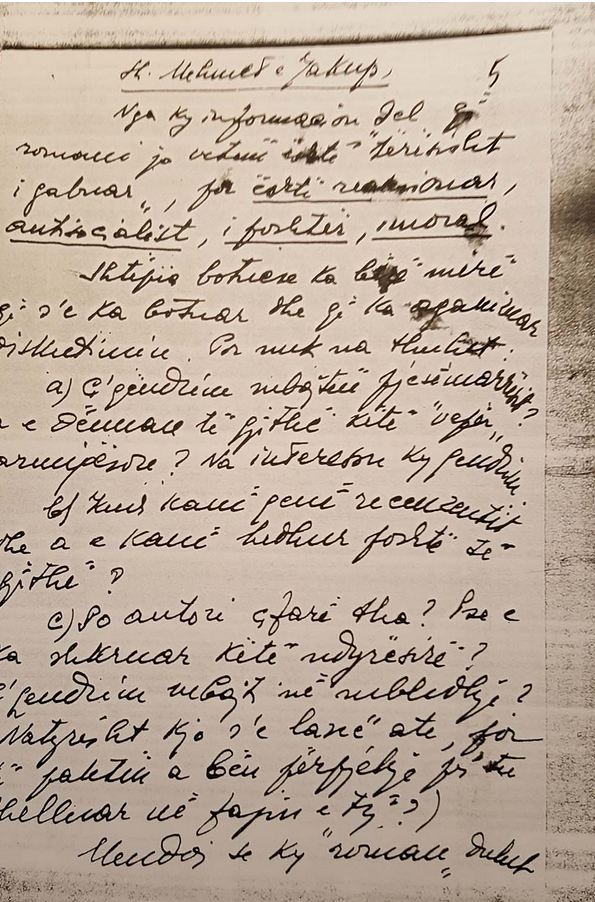 Sh. Mehmet e Jakup,
5
Nga ky informacion del që
romani jo vetëm është "tërësisht
i gabuar", por është reaksionar,
antisocialist, i poshtër, imoral.
Shtëpia botuese ka bërë mirë
që s'e ka botuar dhe që ka organizuar
diskutimin. Por nuk na thuhet:
a) Ç'qëndrim mbajtën pjesëmarrësit?
a e dënuan të gjithë këtë "vepër"
armiqësore? Na intereson ky qëndrim
b) Kush kanë qenë recenzentët
dhe a e kanë hedhur poshtë të
gjithë?
c) Po autori çfarë tha? Pse e
ka shkruar këtë ndyrësirë?
Ç'qëndrim mbajt në mbledhje?
Natyrisht kjo s'e lanë ate, por
paktën a bën përpjekje për tu
thelluar në fajin e tij?)
Mendoj se ky "roman" duhet